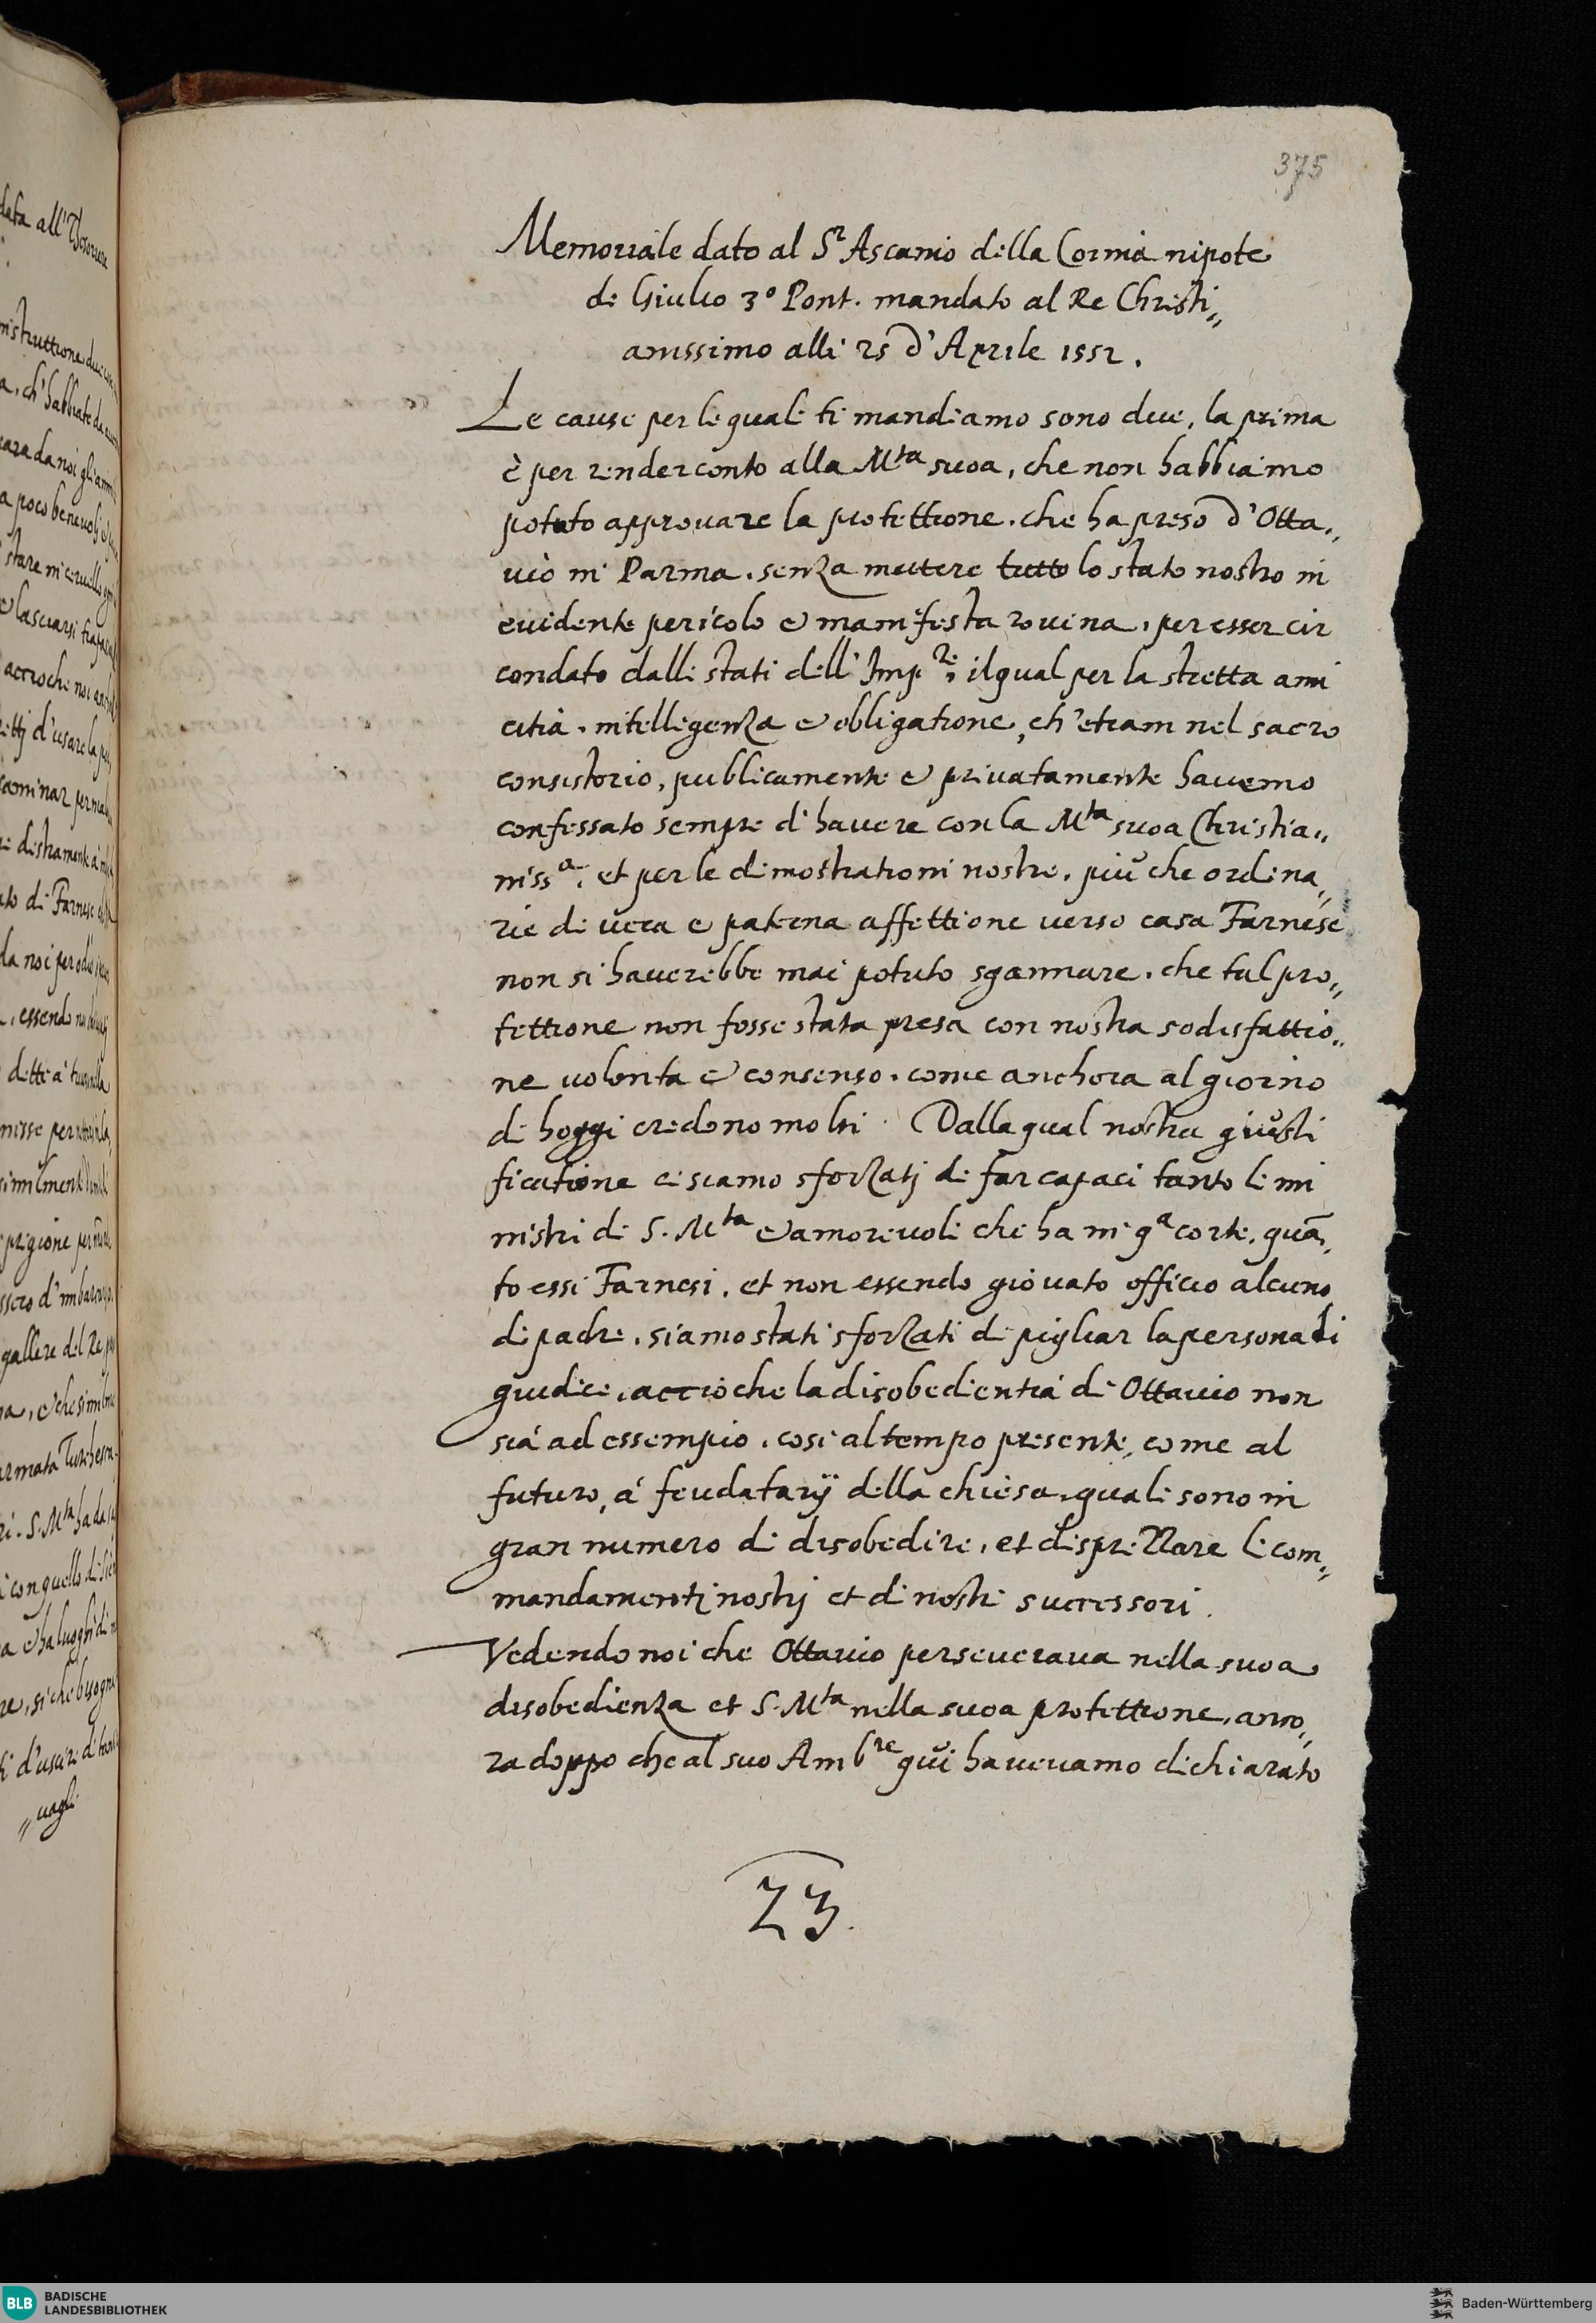 375
Memoriale dato al S.r Ascanio della Cornia nipote
di Giulio 3º Pont. mandato al Re Christi„
anissimo alli 25 d'Aprile 1552.
Le cause per le quale ti mandiamo sono due, la prima
è per render conto alla M.ta suoa, che non habbiamo
potuto approuare la protettione, che ha preso d'Otta„
uio in Parma, senza mettere tutto lo stato nostro in
euidente pericolo e manifesta rouina, per esser cir
condato dalli stati dell'Imp.re, il qual per la stretta ami
citia, intelligenza e obligatione, ch'etiam nel sacro
consistorio, publicamente e priuatamente havemo
confessato sempre di hauere con la M.ta suoa Christia„
niss.a, et per le dimostrationi nostre, più che ordina„
rie di uera e paterna affettione uerso casa Farnese
non si hauerebbe mai potuto sgannare, che tal pro„
tettione non fosse stata presa con nostra sodisfattio„
ne uolonta e consenso, come anchora al giorno
di hoggi credono molti. Dalla qual nostra giusti
ficatione ci siamo sforzatj di far capaci tanto li mi
nistri di S. M.ta e amoreuoli che ha in q.a corte, quā„
to essi Farnesi, et non essendo giouato officio alcuno
di padre, siamo stati sforzati di pigliar la persona di
giudice, accio che la disobedientia di Ottauio non
sia ad essempio, cosi al tempo presente, come al
futuro, à feudatarij della chiesa, quali sono in
gran numero di disobedire, et disprezzare li com„
mandamentj nostrj et di nostri successori.
Vedendo noi che Ottauio perseueraua nella suoa
disobedienza et S. M.ta nella suoa protettione, anco„
ra doppo che al suo Amb.re qui haueuamo dichiarato
23.
BLB BADISCHE
LANDESBIBLIOTHEK
Baden-Württemberg